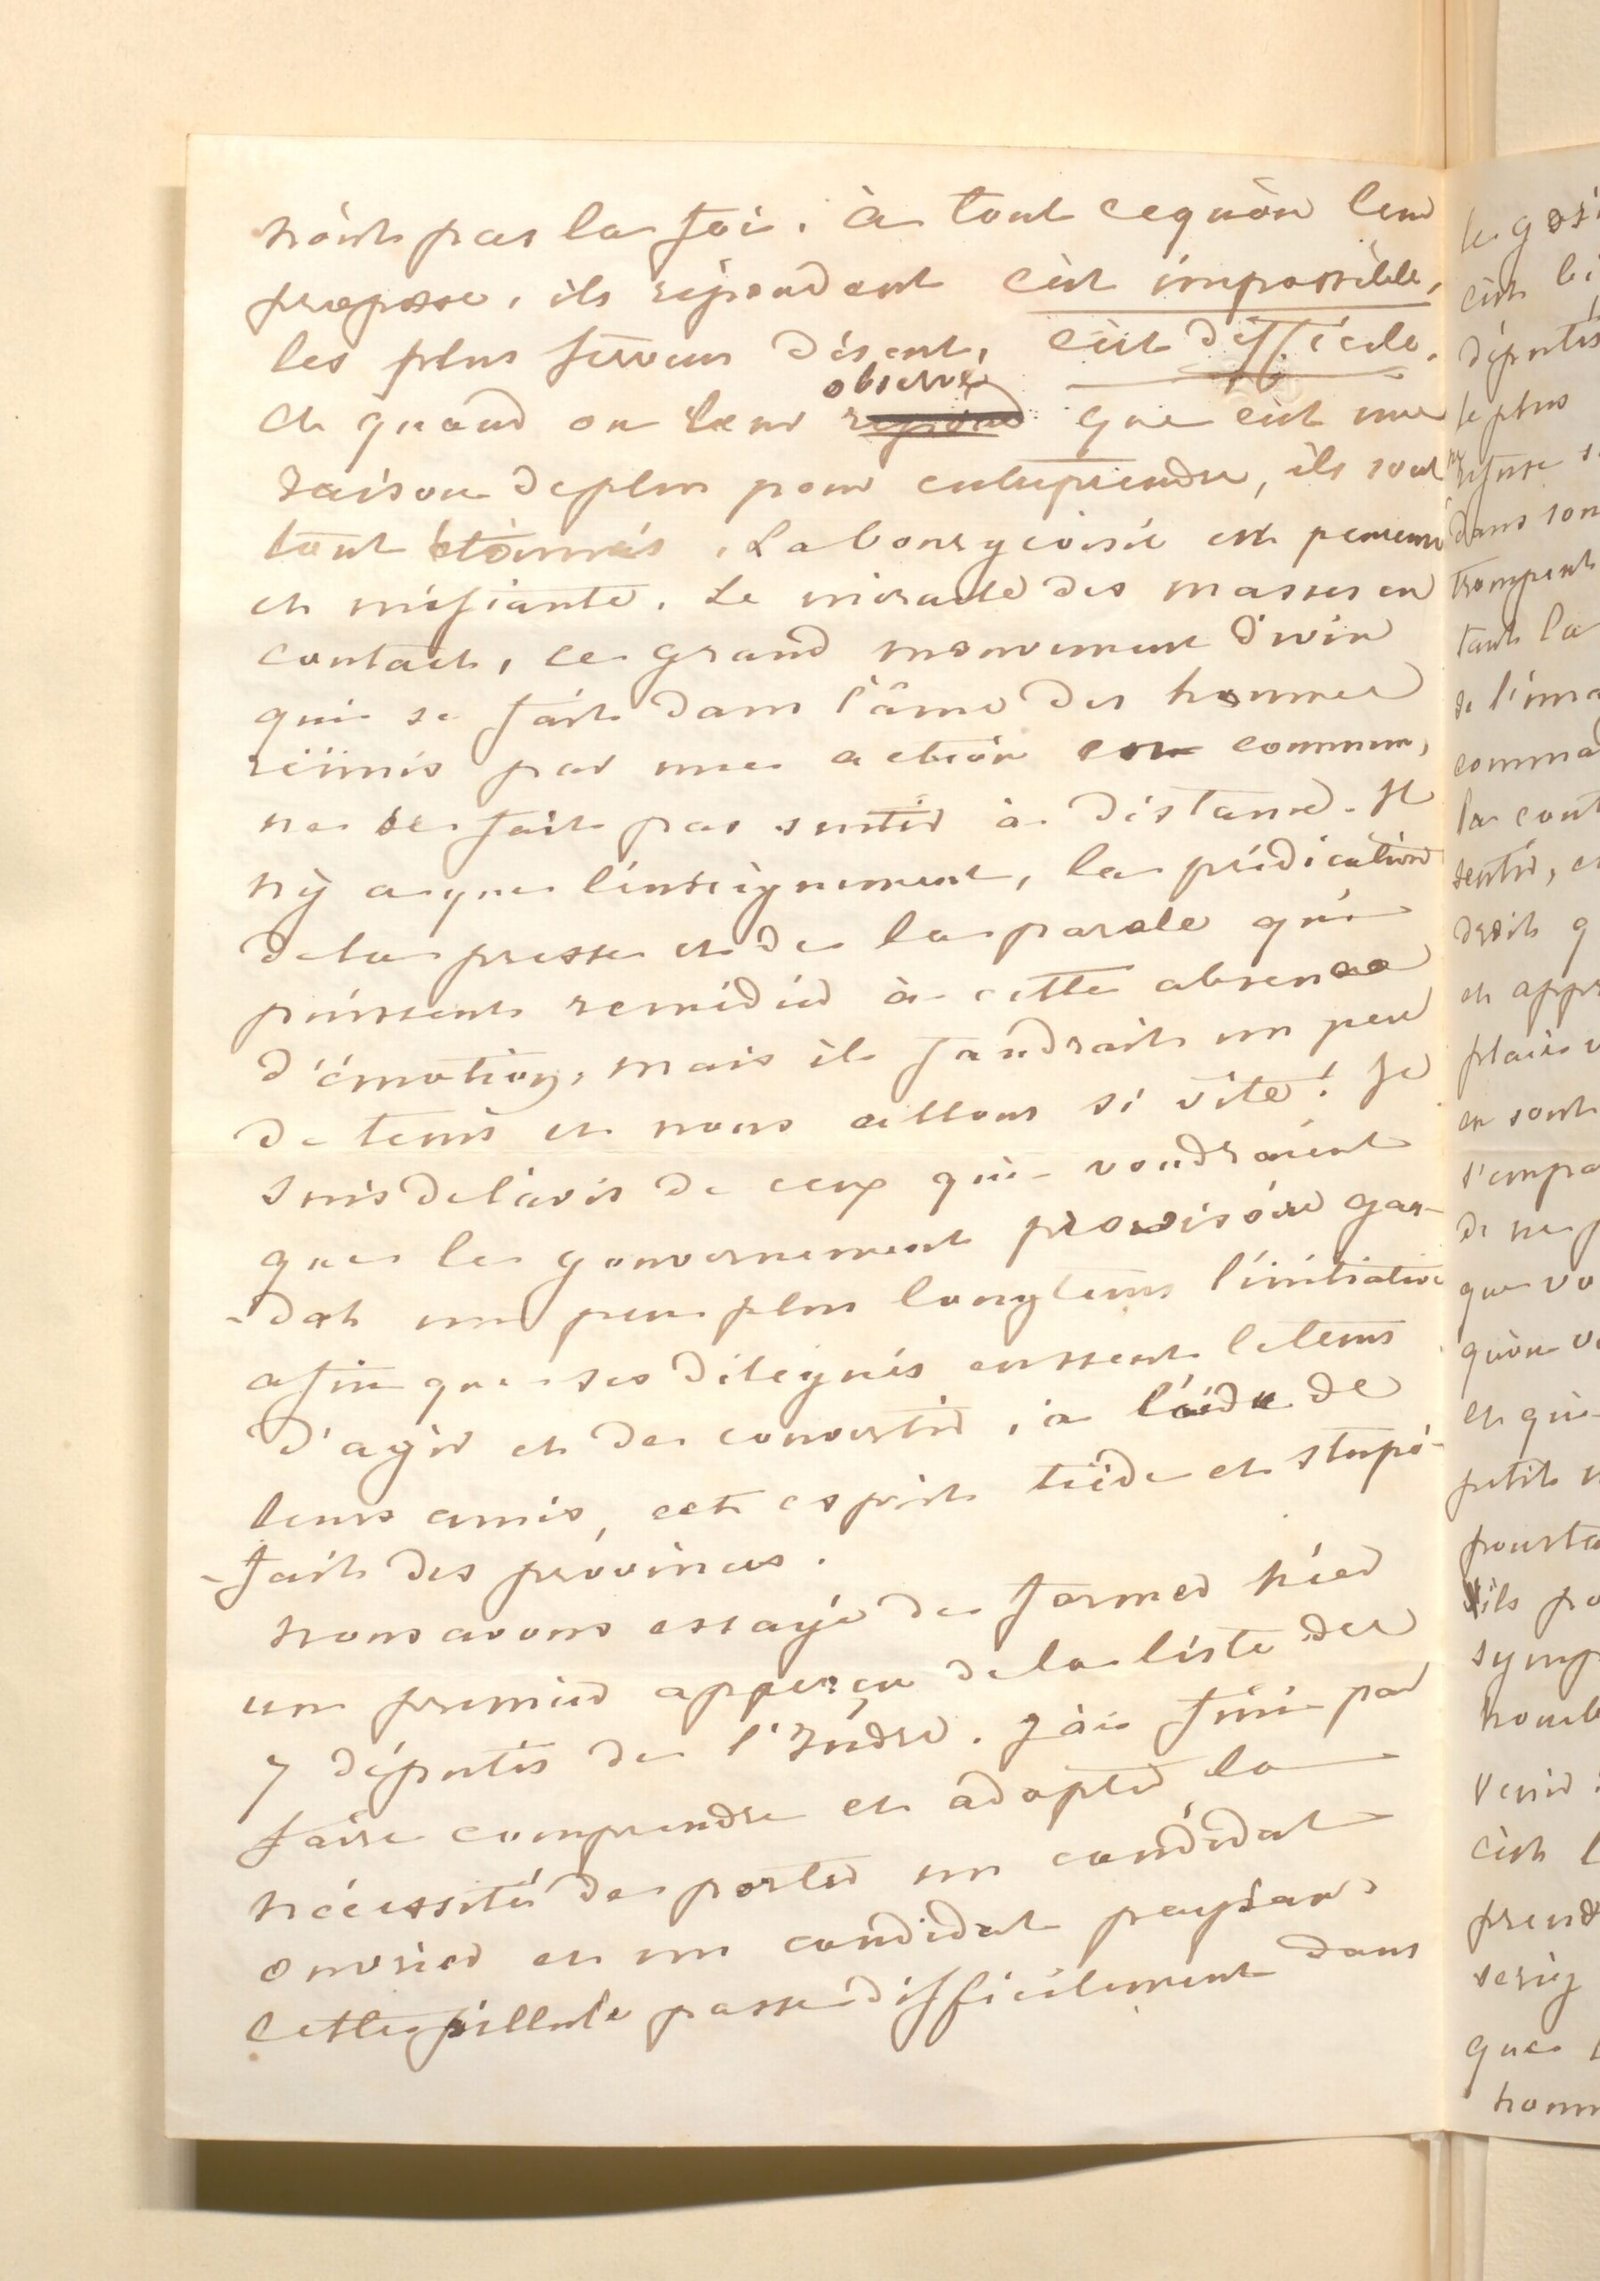 n'ont pas la foi. à tout cequ'on leur
propose, ils répondent c'est impossible,
les plus fervens disent, c'est difficile.
et quand on leur observe que c'est une
raison deplus pour entreprendre, ils sont
tout étonnés. La bourgeoisie est peureuse
et méfiante. Le miracle des masses en
contact, ce grand mouvement divin
qui se fait dans l'âme des hommes
réunis par une action en commun,
ne se fait pas sentir à distance. Il
n'y a que l'enseignement, la prédication
de la presse et de la parole qui
puissent remédier à cette absence
d'émotion, mais il faudrait un peu
de tems et nous allons si vite! Je
suis de l'avis de ceux qui voudraient
que le gouvernement provisoire gar-
-dat un peu plus longtems l'initiative
afin que ses délégués eussent le tems
d'agir et de convertir, à l'aide de
leurs amis, cet esprit tiède et stupé-
-fait des provinces.
nous avons essayé de former hier
un premier apperçu de la liste des
7 députés de l'Indre. J'ai fini par
faire comprendre et adopter la
nécessité de porter un candidat
ouvrier et un candidat paysan.
Cette pillule passe difficilement dans
c'est
députés
le plus
refuse
dans son
trompent
tant la
la
droit
et
en sont
de ne
que
qu'on
et qui
petit
ils
c'est
que